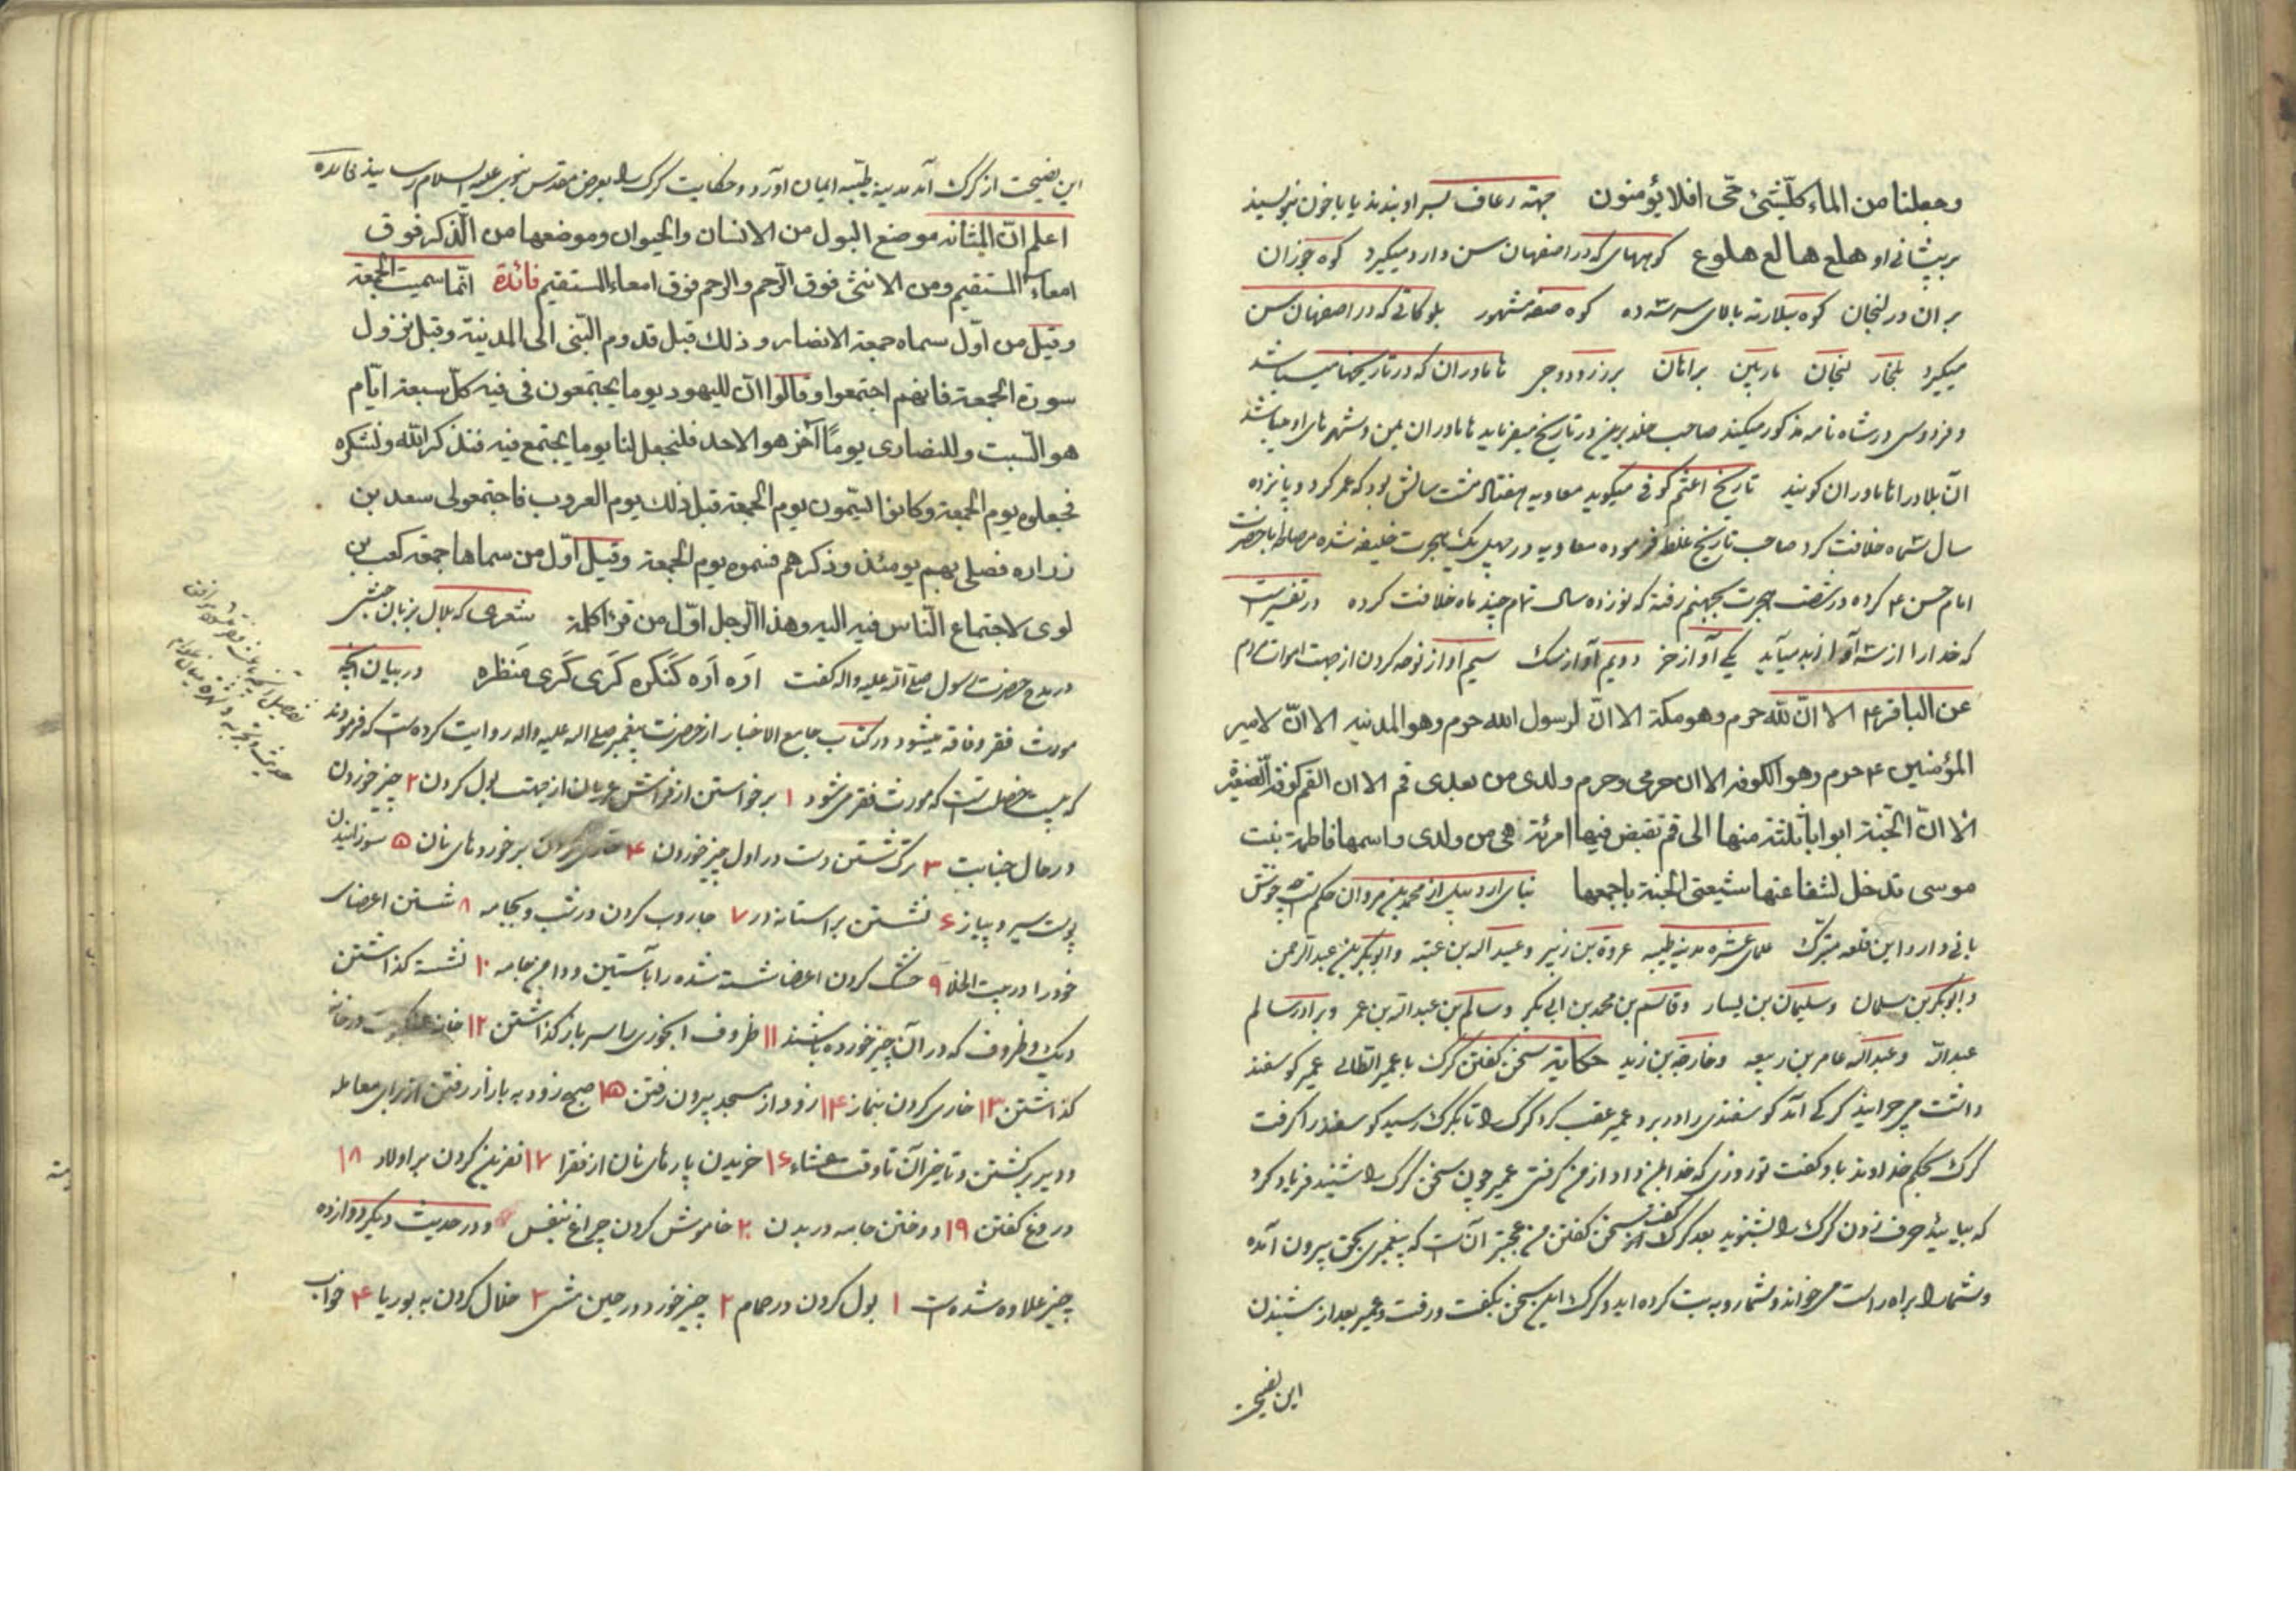 وجعلنا من الماء كلّ شئ حّى افلا يؤمنون جهته رعاف بسر او بندند يا با خون بنويسند
بر پيشانى او هلع هالع هلوع كوههاى كه در اصفهان سن دارد ميكيرد كوه جوزان
بر ان در لنجان كوه سلارته بالاى سه شه ده كوه صفه مشهور بلوكاتى كه در اصفهان سن
ميكيرد بلنجار لنجان ماربين براىان برزرود جى هاماوران كه در تاريخها ميباشد
و فردوسى در شاه نامه مذكور ميكند صاحب خلد برين در تاريخ ميفرمايد هاماوران يمن و شهرهاى او ميباشد
آن بلاد را هاماوران كويند تاريخ اعثم كوفى ميكويد معاويه هفتاد هشت سالش بود كه عمر كرد و پانزده
سال ششماه خلافت كرد صاحب تاريخ غلط فرموده معاويه در چهل يك هجرت خليفه شده مصالحه با حضرت
امام حسن ع كرده در شصت هجرت بجهنم رفته كه نوزده سال تمام چند ماه خلافت كرده در تفسير است
كه خدا را از سه آواز بد ميآيد يكى آواز خر دويم آواز سك سيم اواز نوحه كردن از جهت اموات مردم
عن الباقر ع الا انّ لله حرم وهو مكة الا انّ لرسول الله حرم وهو المدنيه الا انّ لامير
المؤمنين ع حرم وهو الكوفه الا ان حرمى وحرم ولدى من بعدى قم الا ان القم كوفة الصغيرة
الا انّ الجّنة ابوابا ثلثة منها الى قم تقبض فيها امرئة هى من ولدى واسمها فاطمة بنت
موسى تدخل لشفاعتها شيعتى الجنة باجمعها بناى اردبيل از محمد بن مروان حكم است
بانى دارد اين قلعه مبترك علماى عشره مدينه طيبه عروة بن زبير وعبيد اله بن عتبه وابوبكر بن عبد الرحمن
وابوبكر بن سلمان وسليمان بن يسار وقاسم بن محمد بن ابى بكر وسالم بن عبد الله بن عمر وبرادر سالم
عبد الله وعبد اله عامر بن ربيعه وخارجة بن زيد حكايته سخن كفتن كرك با عمير الطائى عمير كوسفند
داشت مى چرانيد كركى آمد كوسفندى را در برد عمير عقب كرد كرك را تا بكرك رسيد كوسفند را كرفت
كرك بحكم خداوند باو كفت تو روزى كه خدا بمن داد از من كرفتى عمير چون سخن كرك را شنيد فرياد كرد
كه بيائيد حرف زدن كرك را بشنويد بعد كرك كفت از سخن كفتن من عجبتر آن است كه پيغمبرى بحق بيرون آمده
وشما را براه راست ميخواند وشما رو به بت كرده ايد وكرك اين سخن بكفت ورفت وعمير بعد از شنيدن
اين نصيحت
اين نصيحت از كرك آمد مدينه طيّبه ايمان آورد وحكايت كرك را بعرض مقدس نبوى عليه السلام رسانيد فائده
اعلم انّ المثانه موضع البول من الانسان والحيوان وموضعها من الذّكر فوق
امعاء المستقيم ومن الانثى فوق الرّحم والرحم فوق امعاء المستقيم فائدة انّما سميت الجمعة
وقيل من اوّل سماه جمعة الانصار وذلك قبل قدوم النّبى الى المدنية وقبل نزول
سورة الجمعة فانهم اجتمعوا وقالوا انّ لليهود يوما يجتمعون فى فيه كلّ سبعة ايّام
هو السّبت وللنصارى يومًا آخر هو الاحد فلنجعل لنا يوما يجتمع فيه فنذكر الله ونشكره
فجعلوه يوم الجمعة وكانوا يسّمون يوم الجمعة قبل ذلك يوم العروب فاجتمعوا لى سعد بن
زراره فصلى بهم يومئذ وذكرهم فسموه يوم الجمعة وقيل اوّل من سماها جمعة كعب بن
لوى لاجتماع النّاس فيه اليه وهذا الّرجل اوّل من قرا كلمة شعرى كه بلال بزبان حبشى
در مدح حضرت رسول صلى الله عليه واله كفت اَرَه اَرَه كَنكَره كَرَى كَرَى مَنظره در بيان آنچه
مورث فقر وفاقه ميشود در كتاب جامع الاخبار از حضرت پيغمبر صلى اله عليه واله روايت كرده است كه فرمودند
كه بيست خصلت است كه مورث فقر مى شود ١ بر خواستن از فراش عريان از جهت بول كردن ٢ چيز خوردن
در حال جنابت ٣ ترك شستن دست در اول چيز خوردن ۴ خارى كردن بر خوردهاى نان ۵ سوزانيدن
پوست سير و پياز ۶ نشستن بر استانه در ٧ جاروب كردن در شب و بجامه ٨ شستن اعضاى
خود را در بيت الخلا ٩ خشك كردن اعضا شسته شده را با آستين ودامن جامه ١٠ نشسته كذاشتن
ديك وظروف كه در آن چيز خورده باشند ١١ ظروف ابخورى را سر باز كذاشتن ١٢ خانه عنكبوت در خانه
كذاشتن ١٣ خارى كردن بنماز ١۴ زود از مسجد بيرون رفتن ١۵ صبح زود به بازار رفتن از براى معامله
ودير بركشتن وتاخير آن تا وقت عشاء ١۶ خريدن پارهاى نان از فقرا ١٧ نفرين كردن بر اولاد ١٨
دروغ كفتن ١٩ دوختن جامه در بدن ٢٠ خاموش كردن چراغ بنفس ودر حديث ديكر دوازده
چيز علاوه شده است ١ بول كردن در حمام ٢ چيز خورد در حين مشى ٣ خلال كردن به بوريا ۴ خواب